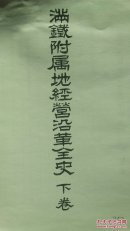 満鐵附属地經營沿革全史 下卷